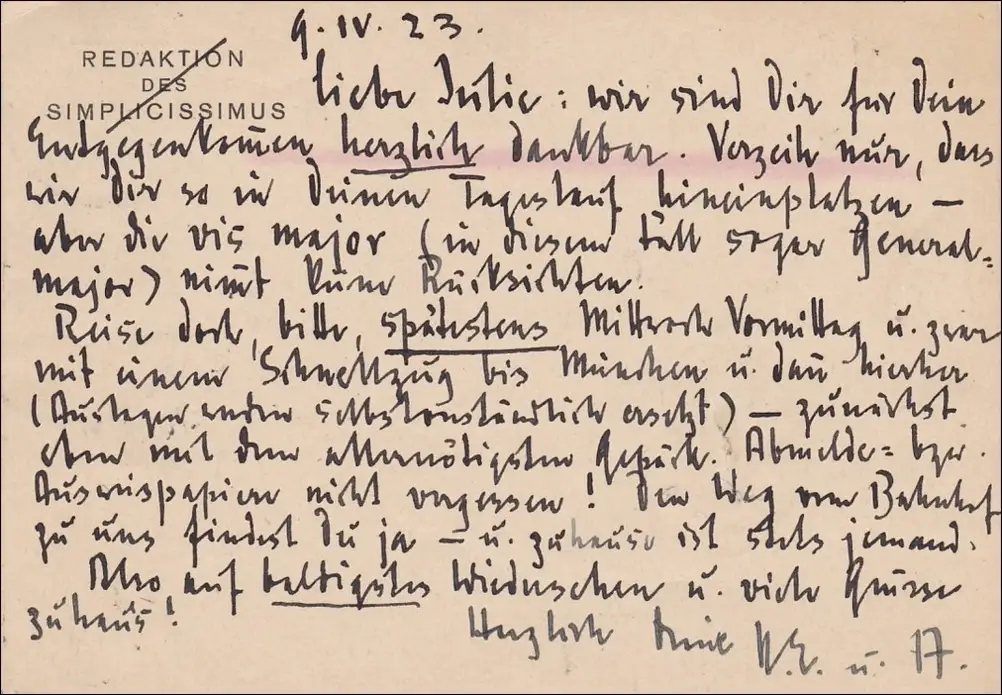 9. IV. 23.
REDAKTION
DES
SIMPLICISSIMUS
Liebe Julie: wir sind Dir für Dein
Entgegenkom̅en herzlich dankbar. Verzeih nur, dass
wir Dir so in Deinen Tageslauf hineinplatzen –
aber die vis major (in diesem Fall sogar General-
major) nim̅t keine Rücksichten.
Reise doch, bitte, spätestens Mittwoch Vormittag u. zwar
mit einem Schnellzug bis München u. dan̅ hierher
(Auslagen werden selbstverständlich ersetzt) – zunächst
eben mit dem allernötigsten Gepäck. Abmelde- bzw.
Ausweispapiere nicht vergessen! Den Weg vom Bahnhof
zu uns findest Du ja – u. zuhause ist stets jemand.
Also auf baldigstes Wiedersehen u. viele Grüsse
zuhaus!
Herzlich Deine D. E. u. A.